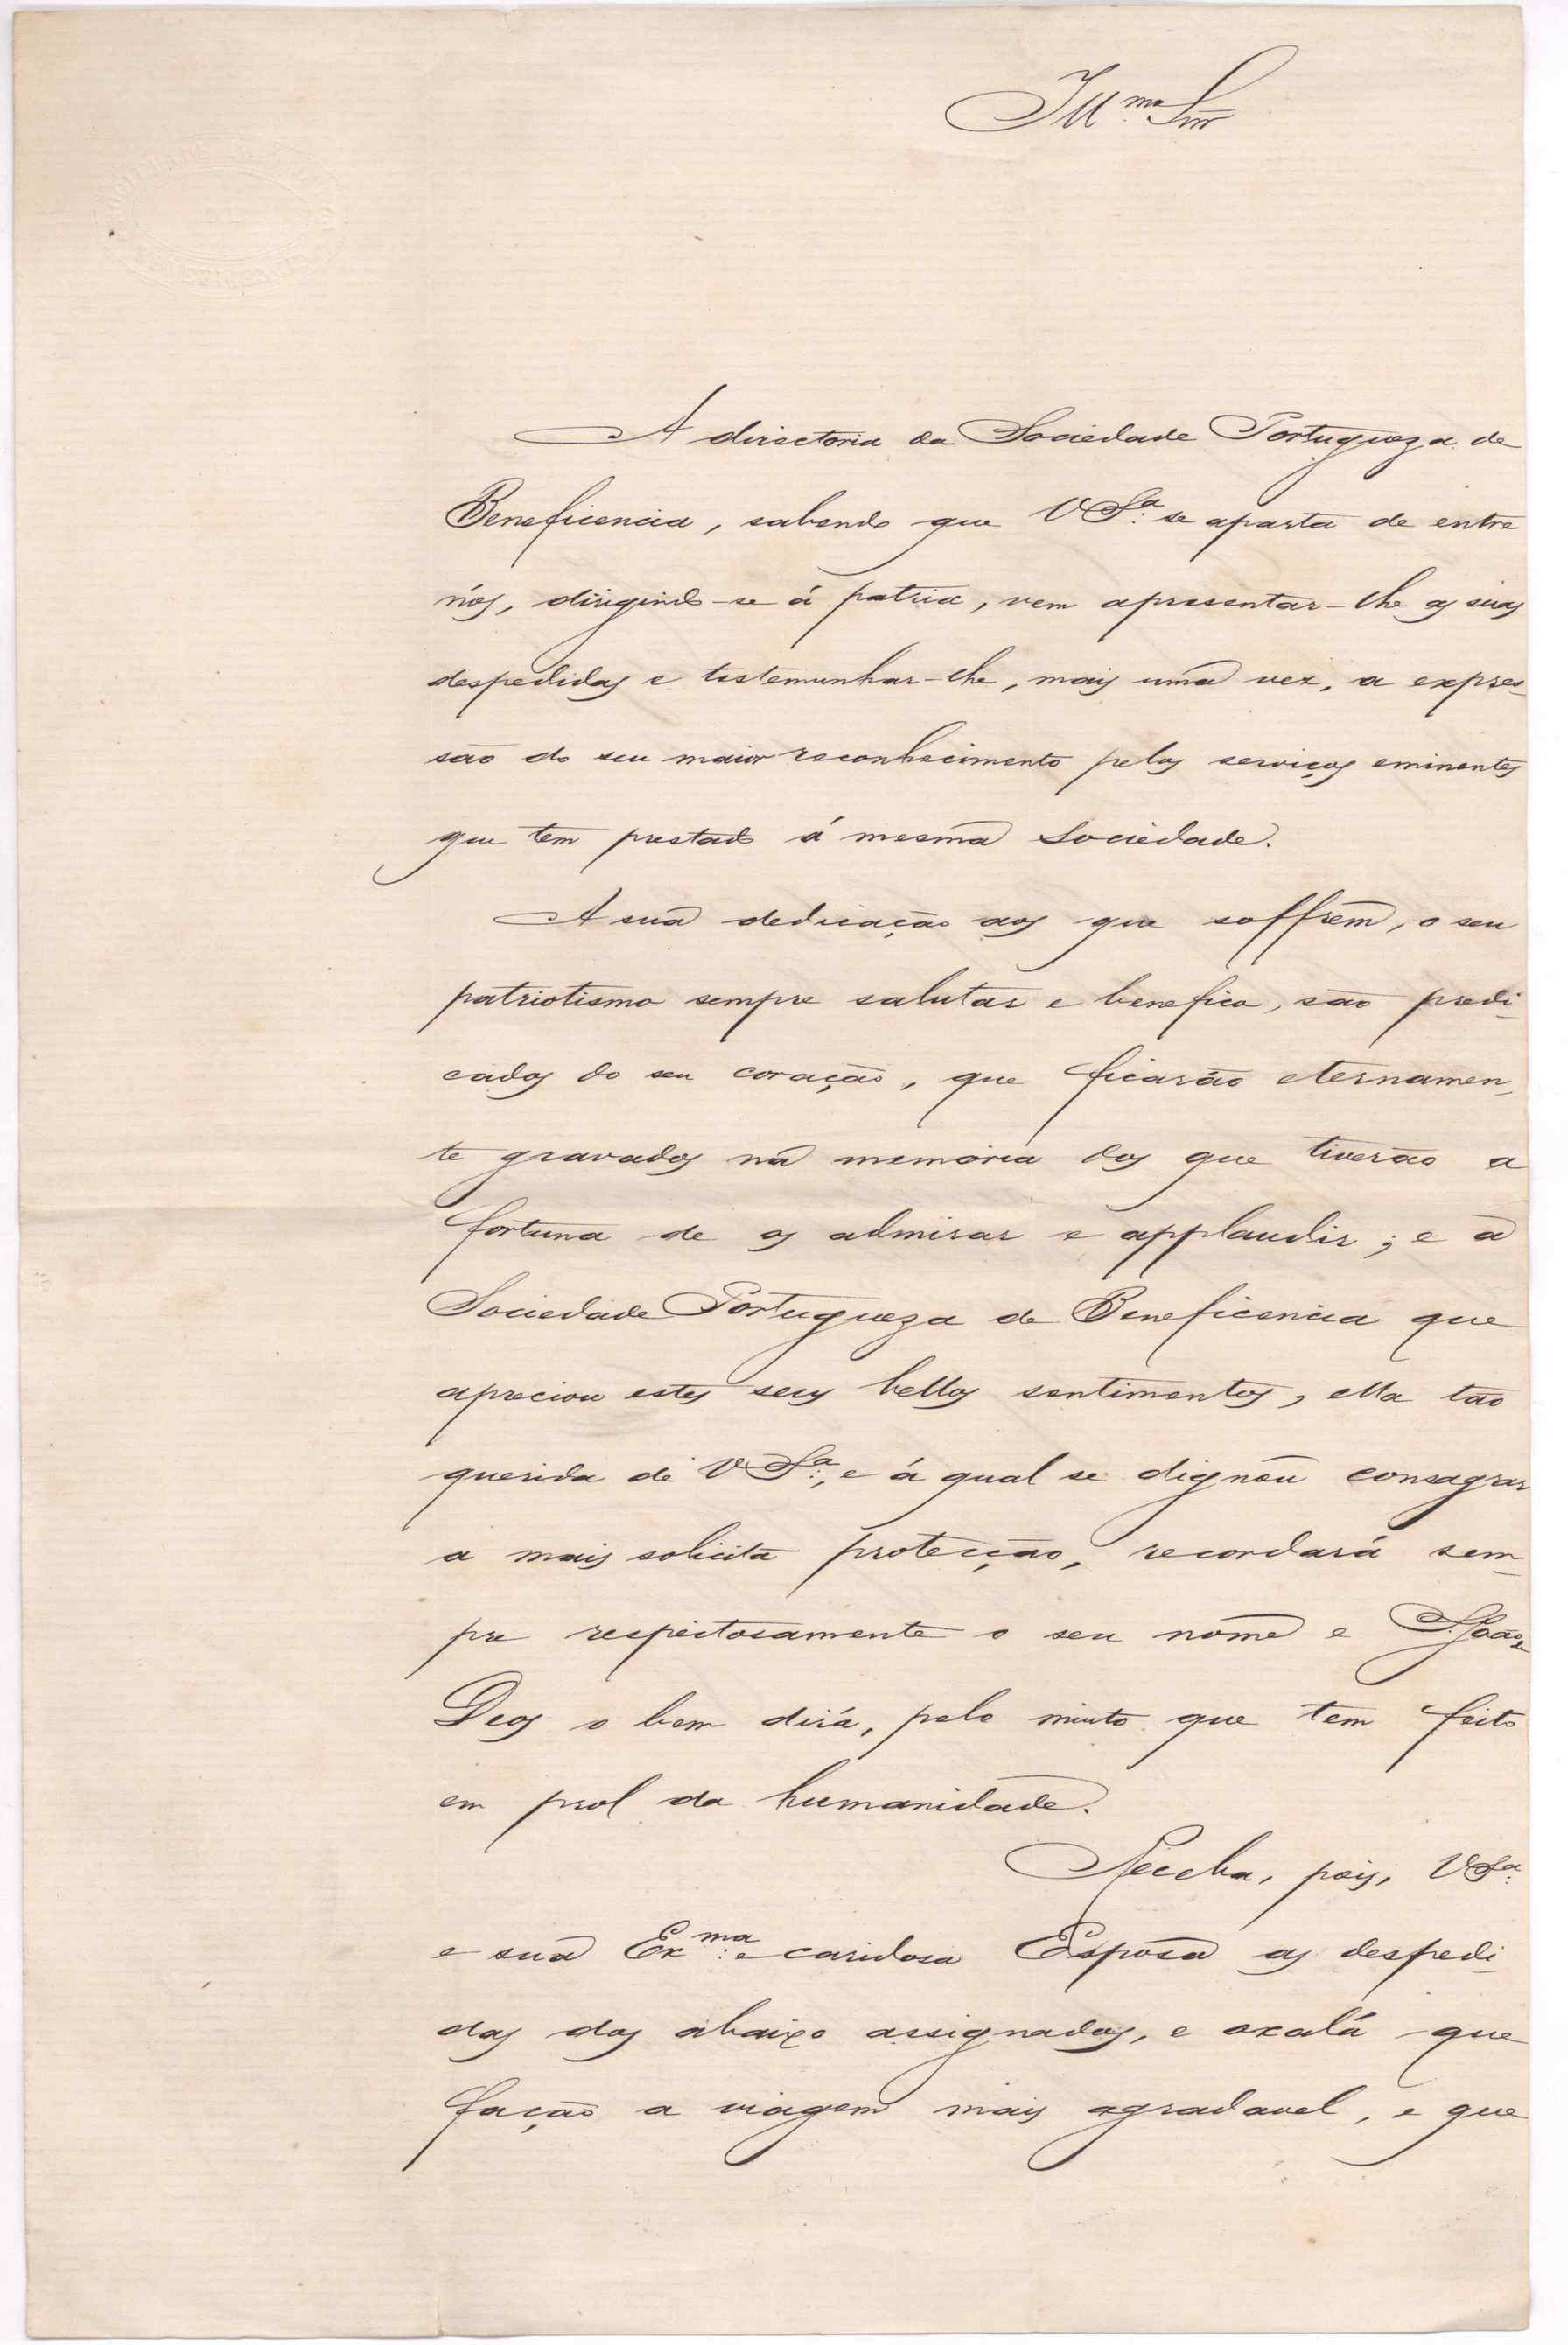 Illmo Snr
A directoria da Sociedade Portugueza de
Beneficencia, sabendo que V Sa. se aparta de entre
nós, dirigindo-se á patria, vem apresentar-lhe as suas
despedidas e testemunhar-lhe, mais uma vez, a expres-
são do seu maior reconhecimento pelos serviços eminentes
que tem prestado á mesma Sociedade.
A sua dedicação aos que soffrem, o seu
patriotismo sempre salutar e benefico, são predi-
cados do seu coração, que ficarão eternamen-
te gravados na memoria dos que tiverão a
fortuna de os admirar e applaudir; e a
Sociedade Portugueza de Beneficencia que
apreciou estes seus bellos sentimentos, ella tão
querida de V Sa., e á qual se dignou consagrar
a mais solicita protecção, recordará sem-
pre respeitosamente o seu nome e S. João de
Deos o bem dirá, pelo muito que tem feito
em prol da humanidade.
Receba, pois, V Sa.
e sua Exma. e caridosa Esposa as despedi-
das dos abaixo assignados, e oxalá que
fação a viagem mais agradavel, e que